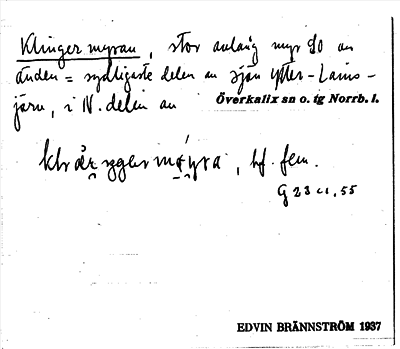 Klingermyran, stor avlång myr SO om
änden = sydligaste delen av sjön Ytter-Lains-
järv, i N. delen av Överkalix sn o. tg Norrb. l.
myra, bf. fem.
G 23 c1, 55
EDVIN BRÄNNSTRÖM 1937